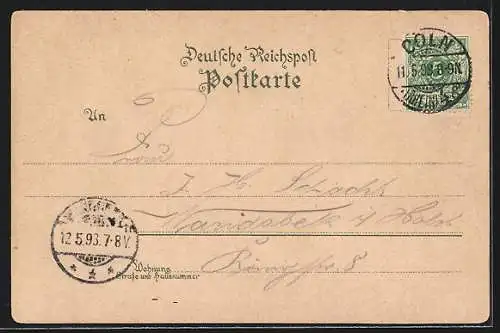 Deutsche Reichspost
Postkarte
CÖLN
11.5.98.8-9N.
(RHEIN)
An
Frau
J. H.
Wandsbek
Königstr 8
12.5.98.7-8V.
Wohnung
Straße und Hausnummer